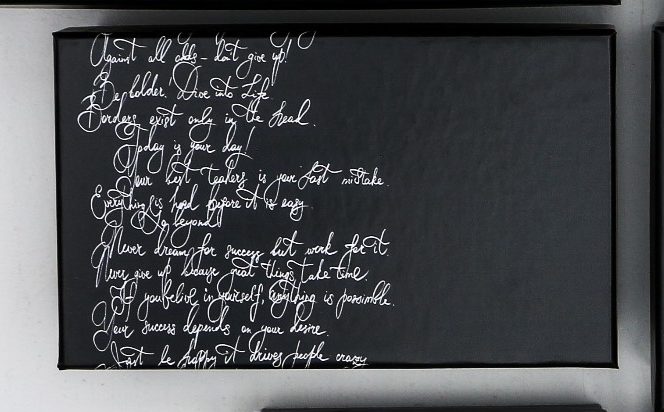 Against all odds - don't give up!
Be bolder. Dive into Life.
Borders exist only in the head.
Today is your day!
Your best teahers is your last mistake.
Everything is hard before it is easy.
Go beyond!
Never dream for success but work for it.
Never give up because great things take time.
If you belive in yourself, anything is possimble.
Your success depends on your desire.
Just be happy it drives people crazy